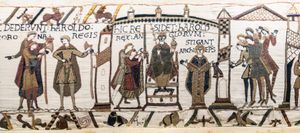 DEDERVNT: hAROLDO:
CORONA REGIS
hIC RESIDET: hAROLD
REX: ANGLORVM:
STIGANT
ARChIEPS